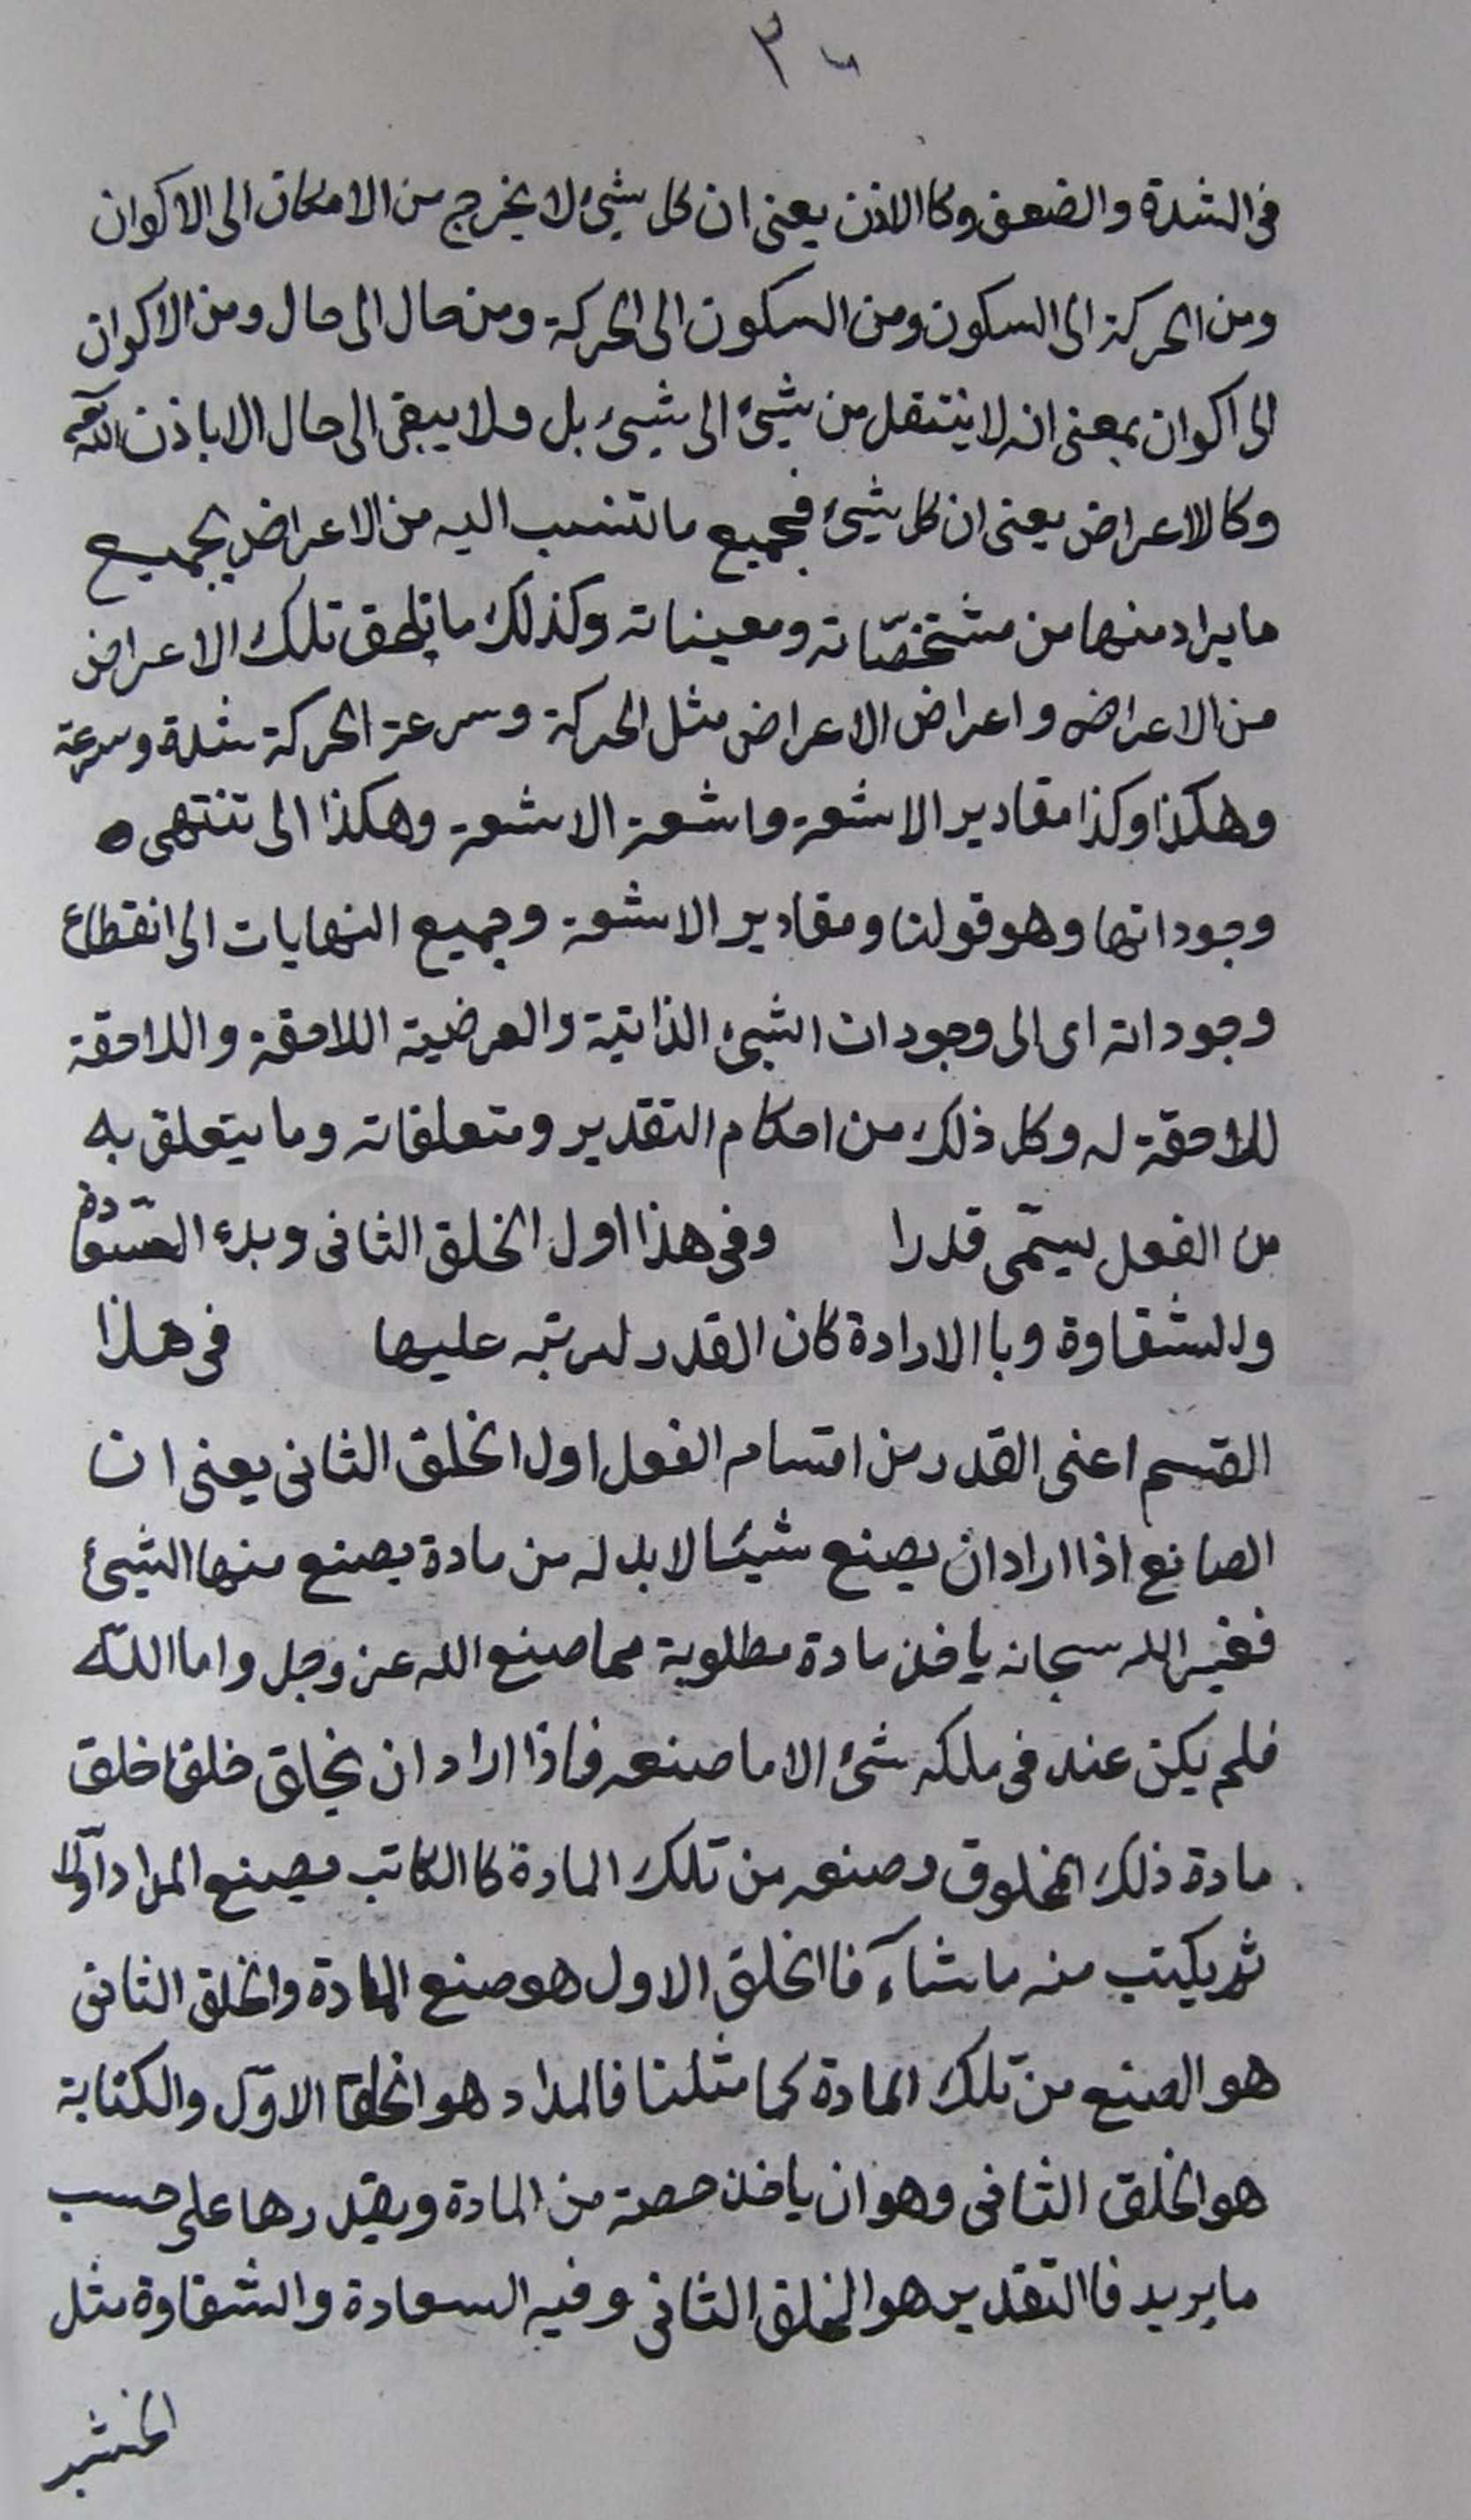 في الشدة والضعف وكالاذن يعنى ان كل شيئ لا يخرج من الامكان الى الاكوان
ومن الحركة الى السكون ومن السكون الى الحركة ومن حال الى حال ومن الاكوان
الى اكوان بمعنى انه لا ينتقل من شيئ الى شيئ بل ولا يبقى الى حال الا باذن الله
وكالاعراض يعنى ان كل شيئ فجميع ما تنسب اليه من الاعراض بجميع
ما يراد منها من مشخصّاته ومعيناته وكذلك ما يلحق تلك الاعراض
من الاعراض واعراض الاعراض مثل الحركة وسرعة الحركة شدة وسرعة
وهكذا وكذا مقادير الاشعة واشعة الاشعة وهكذا الى تنتهى
وجوداتها وهو قولنا ومقادير الاشعة وجميع النهايات الى انقطاع
وجوداته اى الى وجودات الشيئ الذاتية والعرضية اللاحقة واللاحقة
للاحقة له وكل ذلك من احكام التقدير ومتعلقاته وما يتعلق به
من الفعل يسمّى قدرا وفى هذا اول الخلق الثانى وبدء السّعادة
والشقاوة وباالارادة كان القدر لترتبه عليها فى هذا
القسم اعنى القدر من اقسام الفعل اول الخلق الثانى يعنى ان
الصانع اذا اراد ان يصنع شيئا لا بد له من مادة يصنع منها الشيئ
فغير الله سبحانه ياخذ مادة مطلوبة مما صنع الله عز وجل واما الله
فلم يكن عنده فى ملكه شئ الا ما صنعه فاذا اراد ان يخلق خلقا خلق
مادة ذلك المخلوق وصنعه من تلك المادة كا الكاتب يصنع المداد اوّلا
ثم يكتب منه ما شآء فا الخلق الاول هو صنع المادة والخلق الثانى
هو الصنع من تلك المادة كما مثلنا فالمداد هو الخلق الاوّل والكتابة
هو الخلق الثانى وهو ان ياخذ حصة من المادة ويقدرها على حسب
ما يريد فا التقدير هو الخلق الثانى وفيه السعادة والشقاوة مثل
الخشب